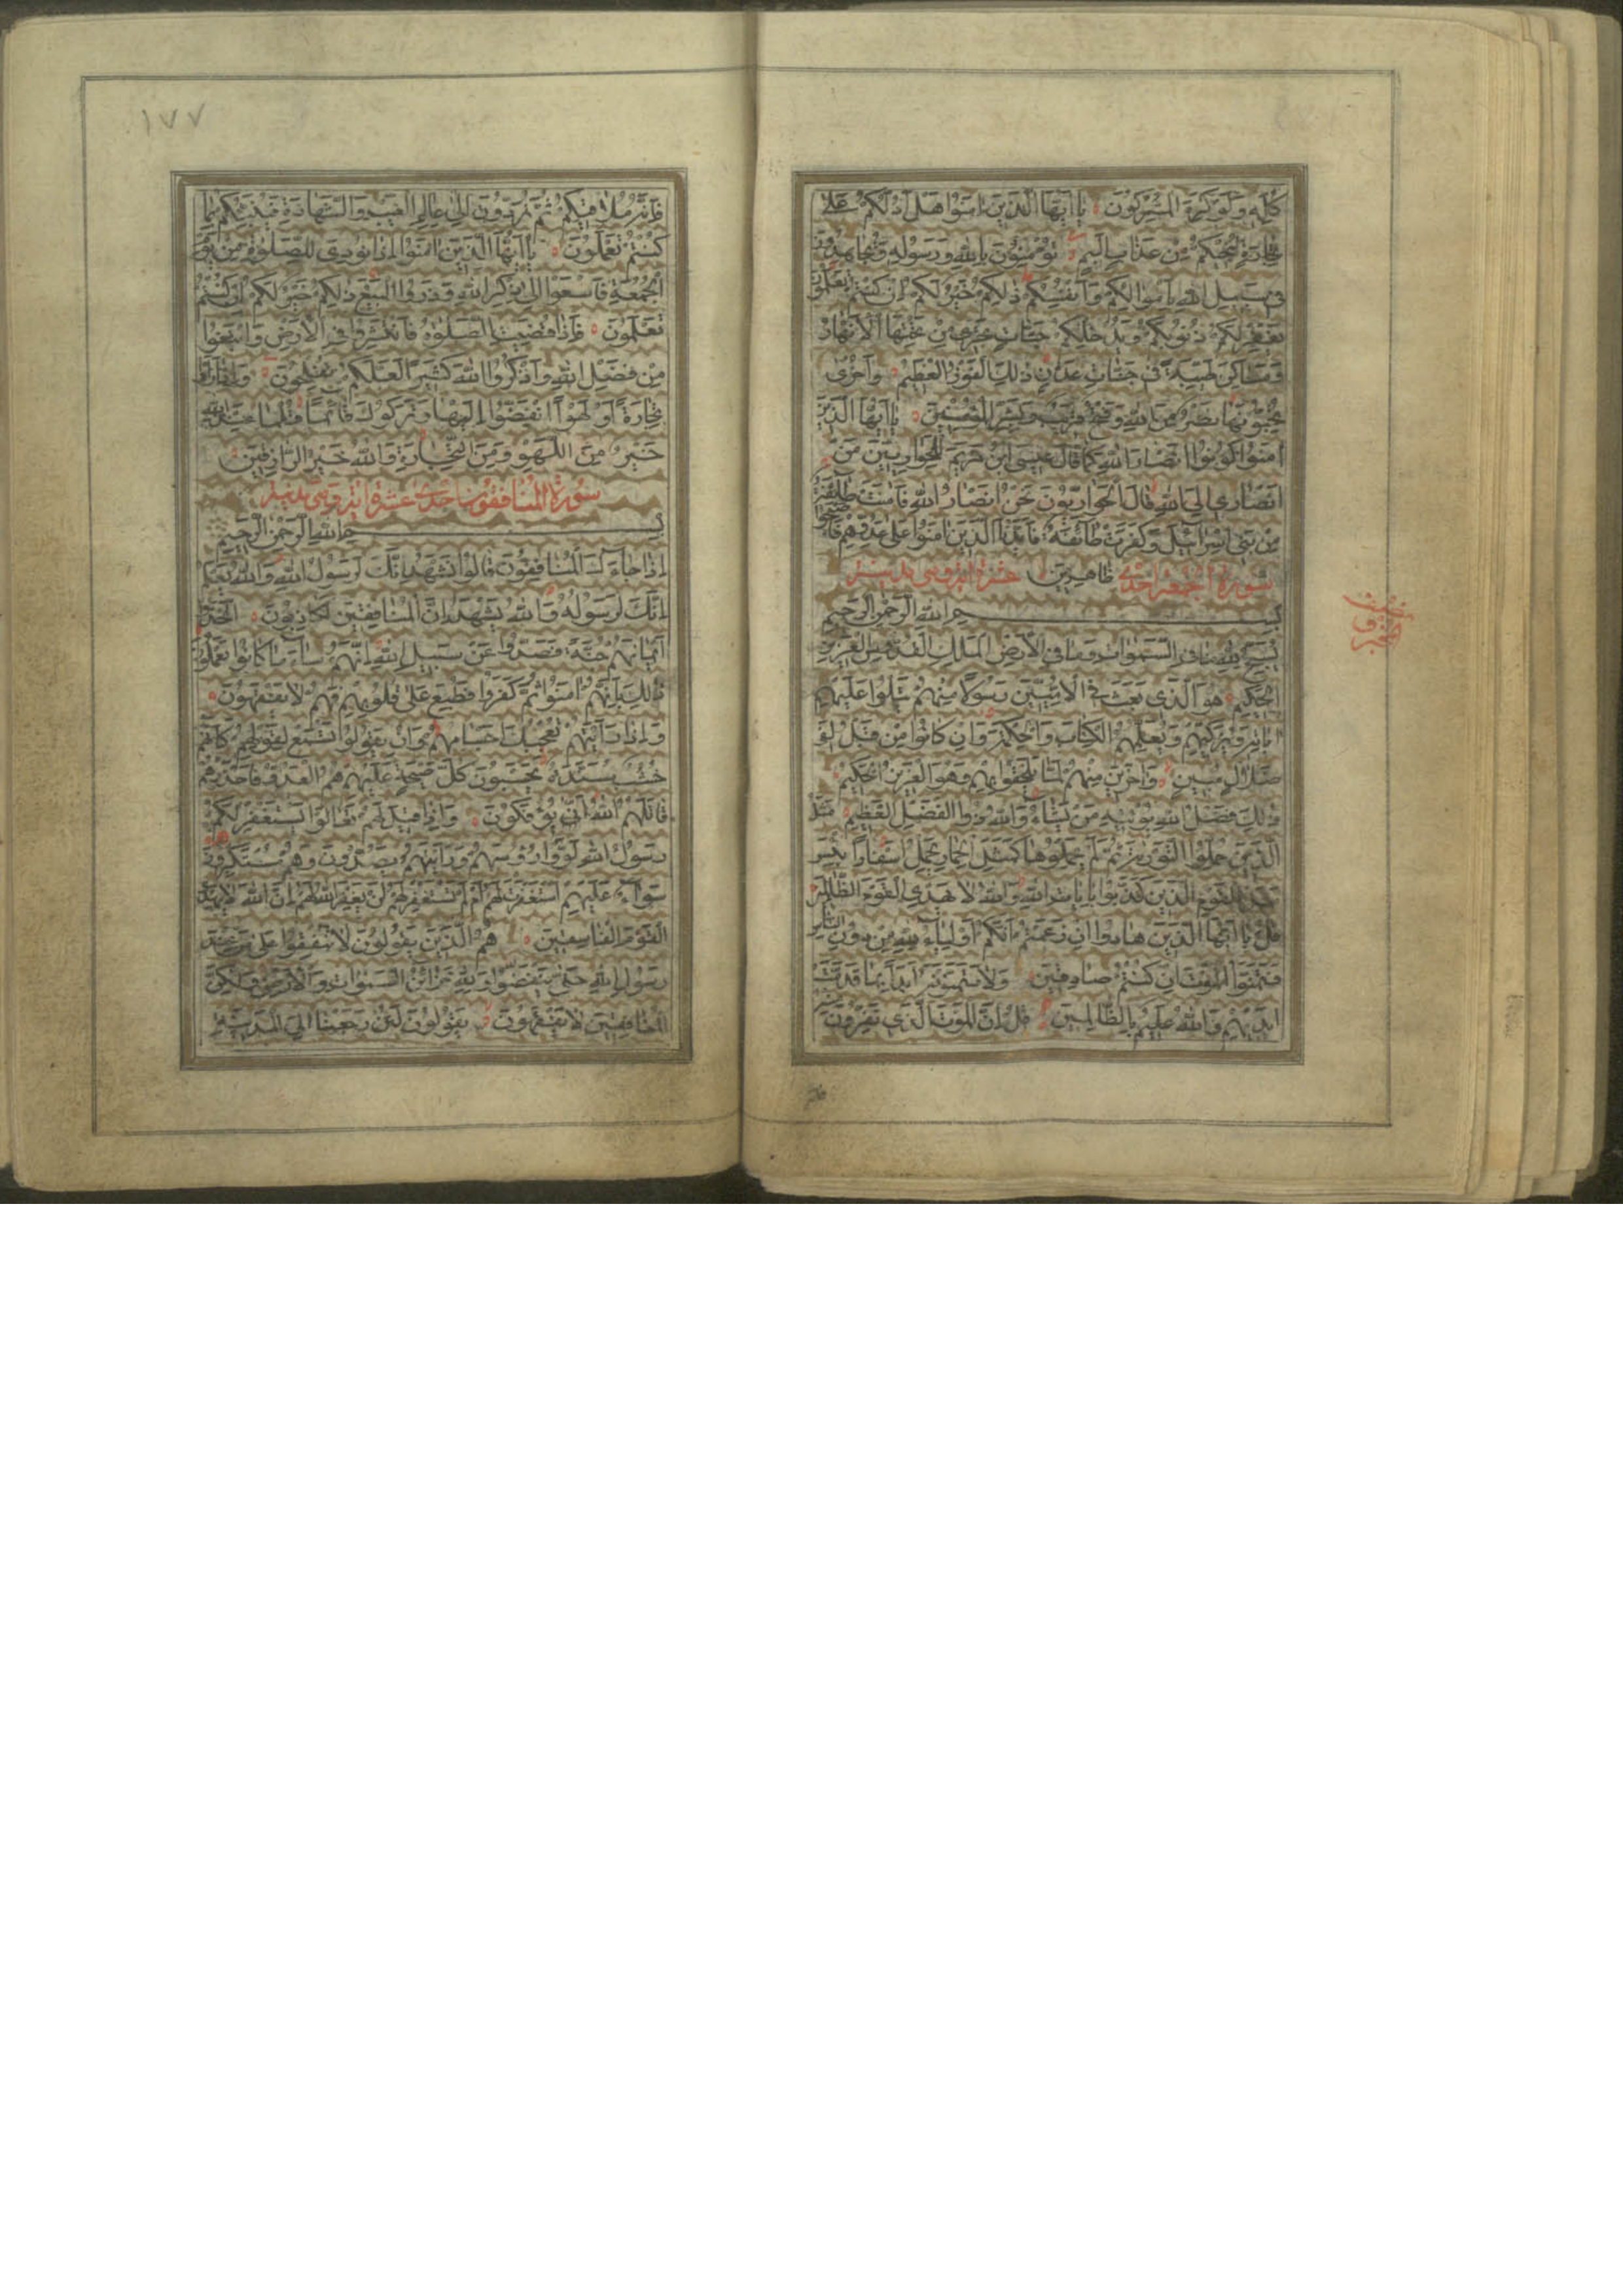 كُلِّهِ وَلَوْ كَرِهَ الْمُشْرِكُونَ يَا أَيُّهَا الَّذِينَ اٰمَنُوا هَلْ أَدُلُّكُمْ عَلَىٰ
تِجَارَةٍ تُنْجِيكُمْ مِنْ عَذَابٍ أَلِيمٍ تُؤْمِنُونَ بِاللّٰهِ وَرَسُولِهِ وَتُجَاهِدُونَ
فِي سَبِيلِ اللّٰهِ بِأَمْوَالِكُمْ وَأَنْفُسِكُمْ ذٰلِكُمْ خَيْرٌ لَكُمْ إِنْ كُنْتُمْ تَعْلَمُونَ
يَغْفِرْ لَكُمْ ذُنُوبَكُمْ وَيُدْخِلْكُمْ جَنَّاتٍ تَجْرِي مِنْ تَحْتِهَا الْأَنْهَارُ
وَمَسَاكِنَ طَيِّبَةً فِي جَنَّاتِ عَدْنٍ ذٰلِكَ الْفَوْزُ الْعَظِيمُ وَأُخْرَىٰ
تُحِبُّونَهَا نَصْرٌ مِنَ اللّٰهِ وَفَتْحٌ قَرِيبٌ وَبَشِّرِ الْمُؤْمِنِينَ يَا أَيُّهَا الَّذِينَ
اٰمَنُوا كُونُوا أَنْصَارَ اللّٰهِ كَمَا قَالَ عِيسَى ابْنُ مَرْيَمَ لِلْحَوَارِيِّينَ مَنْ
أَنْصَارِي إِلَى اللّٰهِ قَالَ الْحَوَارِيُّونَ نَحْنُ أَنْصَارُ اللّٰهِ فَاٰمَنَتْ طَائِفَةٌ
مِنْ بَنِي إِسْرَائِيلَ وَكَفَرَتْ طَائِفَةٌ فَأَيَّدْنَا الَّذِينَ اٰمَنُوا عَلَىٰ عَدُوِّهِمْ فَأَصْبَحُوا
سورة الجمعة احدى ظَاهِرِينَ عشرة اية وهى مدنية
بِسْمِ اللّٰهِ الرَّحْمٰنِ الرَّحِيمِ
يُسَبِّحُ لِلّٰهِ مَا فِي السَّمٰوَاتِ وَمَا فِي الْأَرْضِ الْمَلِكِ الْقُدُّوسِ الْعَزِيزِ
الْحَكِيمِ هُوَ الَّذِي بَعَثَ فِي الْأُمِّيِّينَ رَسُولًا مِنْهُمْ يَتْلُوا عَلَيْهِمْ
اٰيَاتِهِ وَيُزَكِّيهِمْ وَيُعَلِّمُهُمُ الْكِتَابَ وَالْحِكْمَةَ وَإِنْ كَانُوا مِنْ قَبْلُ لَفِي
ضَلَالٍ مُبِينٍ وَاٰخَرِينَ مِنْهُمْ لَمَّا يَلْحَقُوا بِهِمْ وَهُوَ الْعَزِيزُ الْحَكِيمُ
ذٰلِكَ فَضْلُ اللّٰهِ يُؤْتِيهِ مَنْ يَشَاءُ وَاللّٰهُ ذُو الْفَضْلِ الْعَظِيمِ مَثَلُ
الَّذِينَ حُمِّلُوا التَّوْرٰيةَ ثُمَّ لَمْ يَحْمِلُوهَا كَمَثَلِ الْحِمَارِ يَحْمِلُ أَسْفَارًا بِئْسَ
مَثَلُ الْقَوْمِ الَّذِينَ كَذَّبُوا بِاٰيَاتِ اللّٰهِ وَاللّٰهُ لَا يَهْدِي الْقَوْمَ الظَّالِمِينَ
قُلْ يَا أَيُّهَا الَّذِينَ هَادُوا إِنْ زَعَمْتُمْ أَنَّكُمْ أَوْلِيَاءُ لِلّٰهِ مِنْ دُونِ النَّاسِ
فَتَمَنَّوُا الْمَوْتَ إِنْ كُنْتُمْ صَادِقِينَ وَلَا يَتَمَنَّوْنَهُ أَبَدًا بِمَا قَدَّمَتْ
أَيْدِيهِمْ وَاللّٰهُ عَلِيمٌ بِالظَّالِمِينَ قُلْ إِنَّ الْمَوْتَ الَّذِي تَفِرُّونَ مِنْهُ
١٧٧
فَإِنَّهُ مُلَاقِيكُمْ ثُمَّ تُرَدُّونَ إِلَىٰ عَالِمِ الْغَيْبِ وَالشَّهَادَةِ فَيُنَبِّئُكُمْ بِمَا
كُنْتُمْ تَعْمَلُونَ يَا أَيُّهَا الَّذِينَ اٰمَنُوا إِذَا نُودِيَ لِلصَّلٰوةِ مِنْ يَوْمِ
الْجُمُعَةِ فَاسْعَوْا إِلَىٰ ذِكْرِ اللّٰهِ وَذَرُوا الْبَيْعَ ذٰلِكُمْ خَيْرٌ لَكُمْ إِنْ كُنْتُمْ
تَعْلَمُونَ فَإِذَا قُضِيَتِ الصَّلٰوةُ فَانْتَشِرُوا فِي الْأَرْضِ وَابْتَغُوا
مِنْ فَضْلِ اللّٰهِ وَاذْكُرُوا اللّٰهَ كَثِيرًا لَعَلَّكُمْ تُفْلِحُونَ وَإِذَا رَأَوْا
تِجَارَةً أَوْ لَهْوًا انْفَضُّوا إِلَيْهَا وَتَرَكُوكَ قَائِمًا قُلْ مَا عِنْدَ اللّٰهِ
خَيْرٌ مِنَ اللَّهْوِ وَمِنَ التِّجَارَةِ وَاللّٰهُ خَيْرُ الرَّازِقِينَ
سورة المنافقون احدى عشرة اية وهى مدنية
بِسْمِ اللّٰهِ الرَّحْمٰنِ الرَّحِيمِ
إِذَا جَاءَكَ الْمُنَافِقُونَ قَالُوا نَشْهَدُ إِنَّكَ لَرَسُولُ اللّٰهِ وَاللّٰهُ يَعْلَمُ
إِنَّكَ لَرَسُولُهُ وَاللّٰهُ يَشْهَدُ إِنَّ الْمُنَافِقِينَ لَكَاذِبُونَ اتَّخَذُوا
أَيْمَانَهُمْ جُنَّةً فَصَدُّوا عَنْ سَبِيلِ اللّٰهِ إِنَّهُمْ سَاءَ مَا كَانُوا يَعْمَلُونَ
ذٰلِكَ بِأَنَّهُمْ اٰمَنُوا ثُمَّ كَفَرُوا فَطُبِعَ عَلَىٰ قُلُوبِهِمْ فَهُمْ لَا يَفْقَهُونَ
وَإِذَا رَأَيْتَهُمْ تُعْجِبُكَ أَجْسَامُهُمْ وَإِنْ يَقُولُوا تَسْمَعْ لِقَوْلِهِمْ كَأَنَّهُمْ
خُشُبٌ مُسَنَّدَةٌ يَحْسَبُونَ كُلَّ صَيْحَةٍ عَلَيْهِمْ هُمُ الْعَدُوُّ فَاحْذَرْهُمْ
قَاتَلَهُمُ اللّٰهُ أَنَّىٰ يُؤْفَكُونَ وَإِذَا قِيلَ لَهُمْ تَعَالَوْا يَسْتَغْفِرْ لَكُمْ
رَسُولُ اللّٰهِ لَوَّوْا رُؤُسَهُمْ وَرَأَيْتَهُمْ يَصُدُّونَ وَهُمْ مُسْتَكْبِرُونَ
سَوَاءٌ عَلَيْهِمْ أَسْتَغْفَرْتَ لَهُمْ أَمْ لَمْ تَسْتَغْفِرْ لَهُمْ لَنْ يَغْفِرَ اللّٰهُ لَهُمْ إِنَّ اللّٰهَ لَا يَهْدِي
الْقَوْمَ الْفَاسِقِينَ هُمُ الَّذِينَ يَقُولُونَ لَا تُنْفِقُوا عَلَىٰ مَنْ عِنْدَ
رَسُولِ اللّٰهِ حَتَّىٰ يَنْفَضُّوا وَلِلّٰهِ خَزَائِنُ السَّمٰوَاتِ وَالْأَرْضِ وَلٰكِنَّ
الْمُنَافِقِينَ لَا يَفْقَهُونَ يَقُولُونَ لَئِنْ رَجَعْنَا إِلَى الْمَدِينَةِ